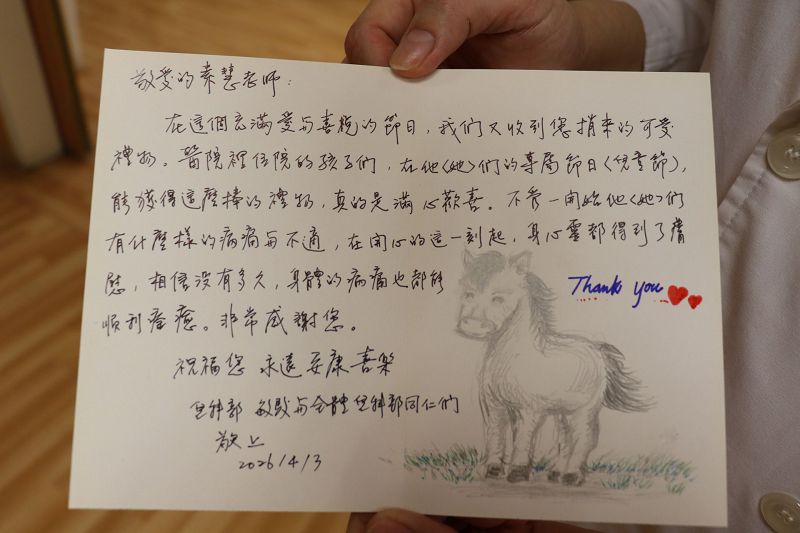 敬愛的素慧老師：
在這個充滿愛與喜悅的節日，我們又收到您捎來的可愛
禮物。醫院裡住院的孩子們，在他<她>們的專屬節日<兒童節>，
能獲得這麼棒的禮物，真的是滿心歡喜。不管一開始他<她>們
有什麼樣的病痛與不適，在開心的這一刻起，身心靈都得到了膚
慰，相信沒有多久，身體的病痛也都能
順利痊癒。非常感謝您。
Thank you
祝福您 永遠安康喜樂
兒科部 敏 與全體兒科部同仁們
敬上
2026/4/3